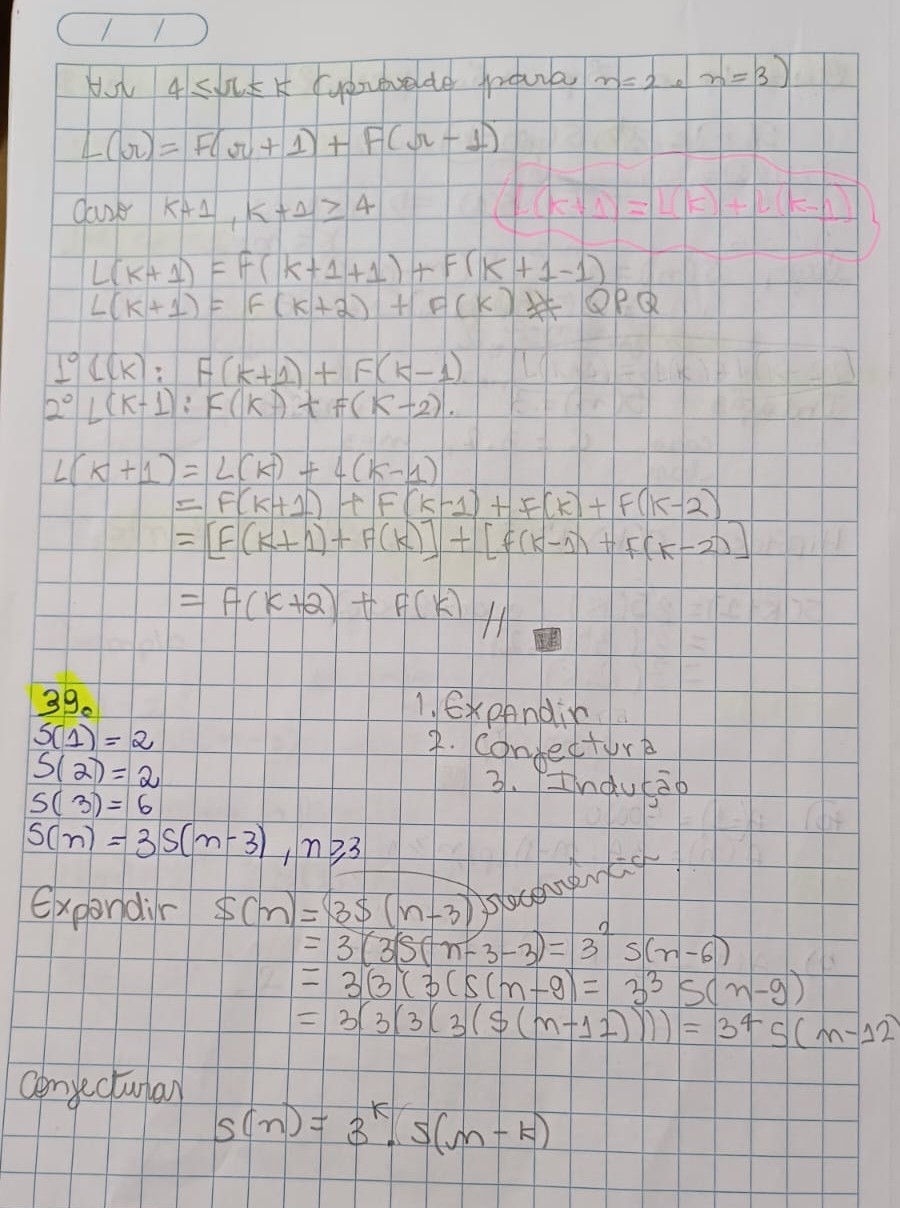 / /
∀r 4 ≤ r ≤ K (provado para n=2 e n=3)
L(r) = F(r+1) + F(r-1)
Caso K+1, K+1 ≥ 4
L(K+1) = L(K) + L(K-1)
L(K+1) = F(K+1+1) + F(K+1-1)
L(K+1) = F(K+2) + F(K) * QPQ
1º L(K): F(K+1) + F(K-1)
2º L(K-1): F(K) + F(K-2).
L(K+1) = L(K) + L(K-1)
= F(K+1) + F(K-1) + F(K) + F(K-2)
= [F(K+1) + F(K)] + [F(K-1) + F(K-2)]
= F(K+2) + F(K) //
39.
S(1) = 2
S(2) = 2
S(3) = 6
S(n) = 3S(n-3), n≥3
1. Expandir
2. Conjectura
3. Indução
Expandir S(n) = (3S(n-3) recorrência
= 3(3(S(n-3-3) = 3² S(n-6)
= 3(3(3(S(n-9) = 3³ S(n-9)
= 3(3(3(3(S(n-12)))) = 3⁴ S(n-12)
Conjecturar
S(n) = 3ᴷ. S(n-k)